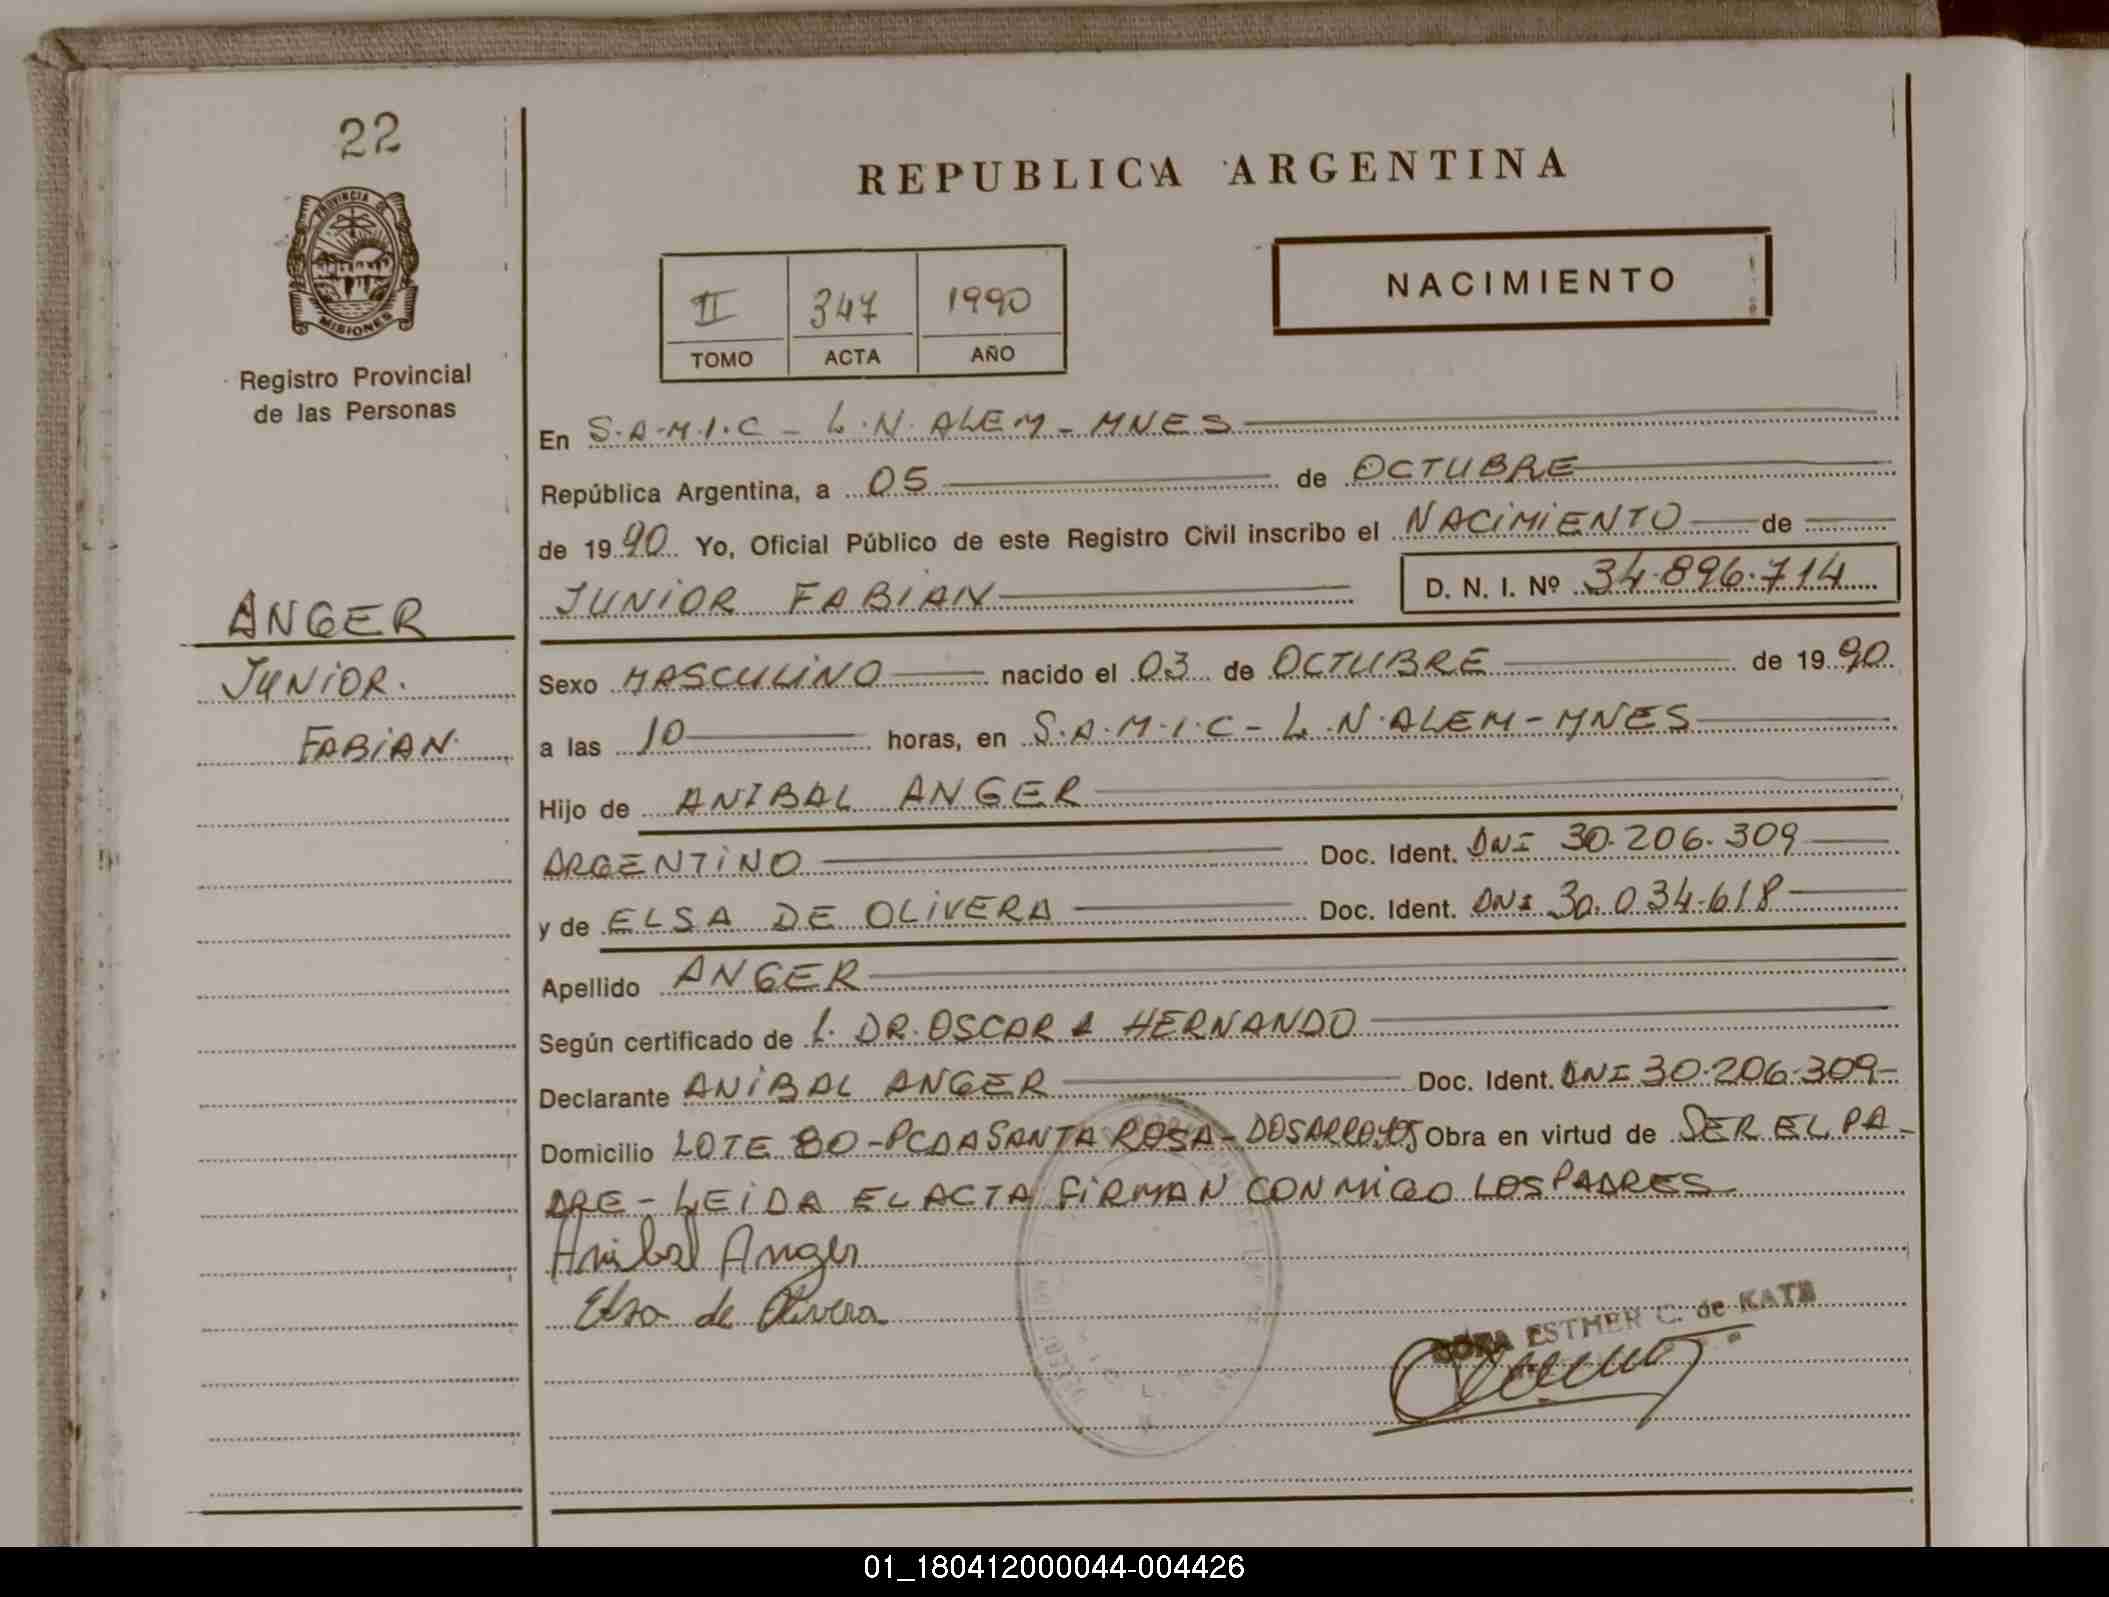 22
PROVINCIA DE
MISIONES
Registro Provincial
de las Personas
ANGER
JUNIOR.
FABIAN
REPUBLICA ARGENTINA
NACIMIENTO
II 347 1990
TOMO ACTA AÑO
En S.A.M.I.C - L.N. ALEM - MNES
República Argentina, a 05 de OCTUBRE
de 1990 Yo, Oficial Público de este Registro Civil inscribo el NACIMIENTO de
JUNIOR FABIAN D. N. I. Nº 34.896.714
Sexo MASCULINO nacido el 03 de OCTUBRE de 1990
a las 10 horas, en S.A.M.I.C - L.N. ALEM - MNES
Hijo de ANIBAL ANGER
ARGENTINO Doc. Ident. DNI 30.206.309
y de ELSA DE OLIVERA Doc. Ident. DNI 30.034.618
Apellido ANGER
Según certificado de L. DR. OSCAR A HERNANDO
Declarante ANIBAL ANGER Doc. Ident. DNI 30.206.309-
Domicilio LOTE 80 - PCDA SANTA ROSA - DOSARROYOS Obra en virtud de SER EL PA-
DRE - LEIDA EL ACTA FIRMAN CONMIGO LOS PADRES
Anibal Anger
Elsa de Olivera
ESTHER C. de KATZ
01_180412000044-004426